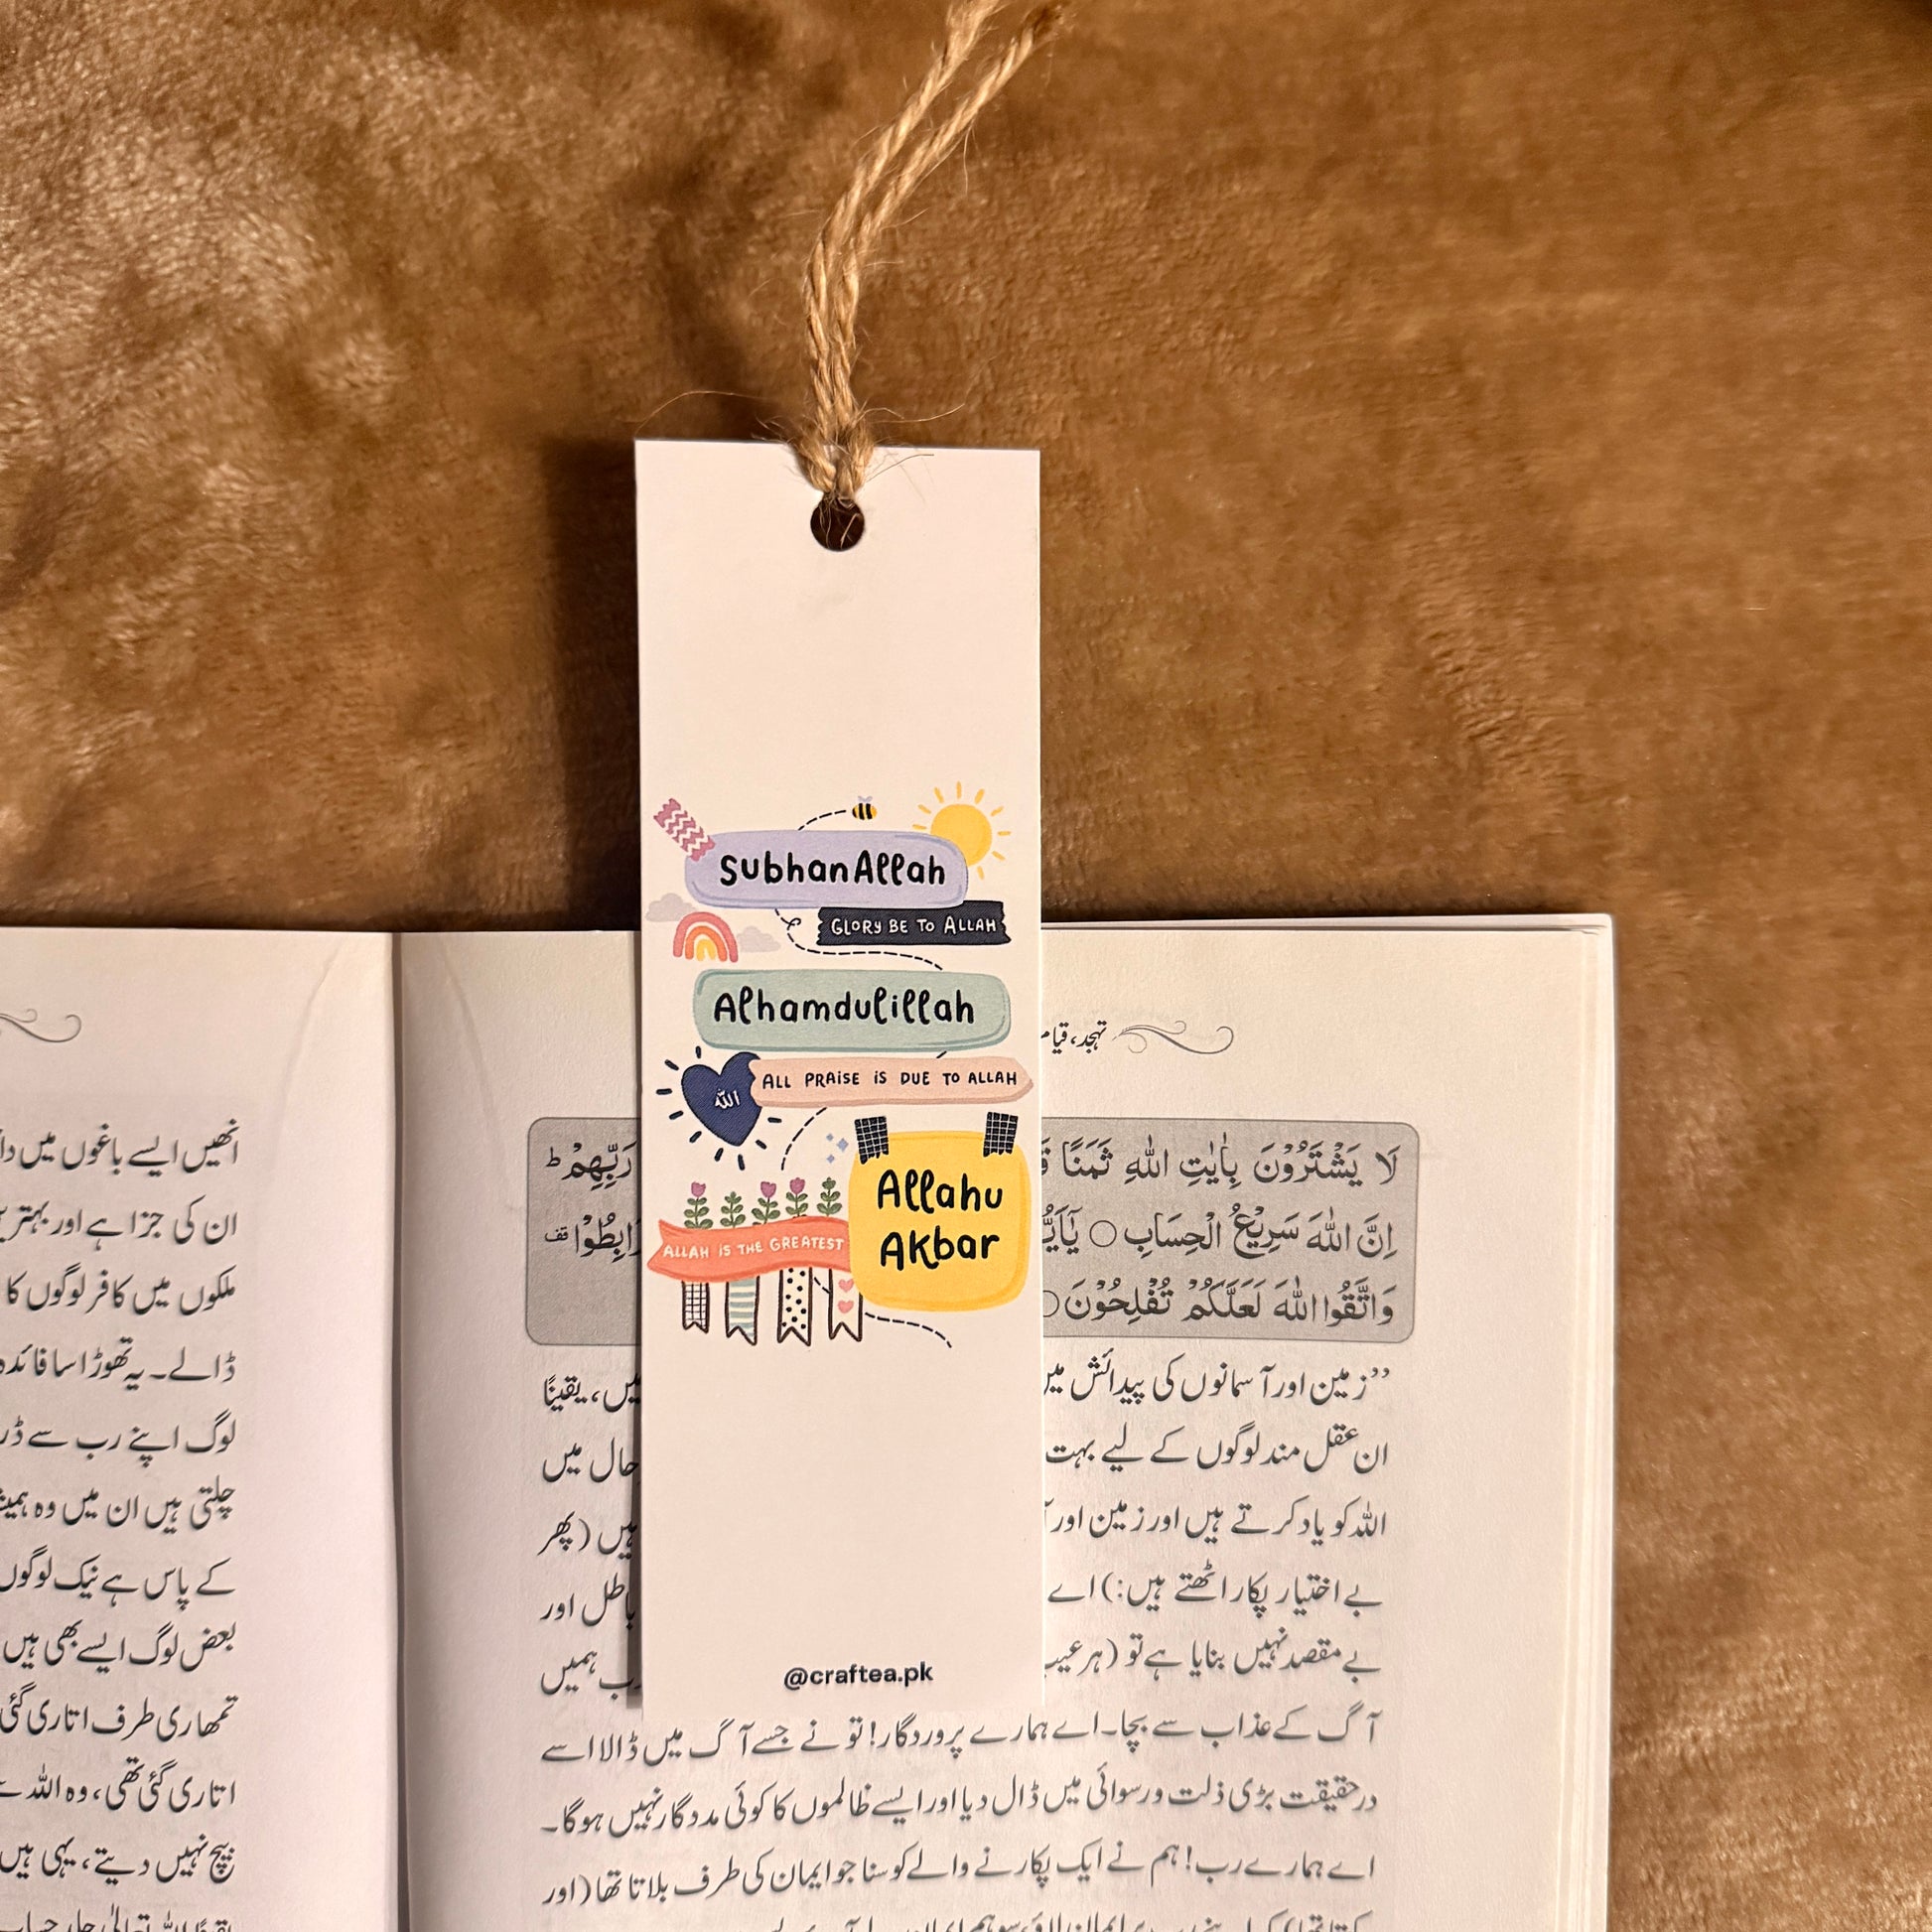 SubhanAllah
GLORY BE TO ALLAH
Alhamdulillah
ALL PRAISE IS DUE TO ALLAH
الله
Allahu
Akbar
ALLAH IS THE GREATEST
@craftea.pk
تہجد، قیام
لَا يَشْتَرُوْنَ بِاٰيٰتِ اللّٰهِ ثَمَنًا رَبِّهِمْ ط
اِنَّ اللّٰهَ سَرِيْعُ الْحِسَابِ ○
وَاتَّقُوا اللّٰهَ لَعَلَّكُمْ تُفْلِحُوْنَ ○
”زمین اور آسمانوں کی پیدائش میں، یقینًا
ان عقل مند لوگوں کے لیے بہت حال میں
اللہ کو یاد کرتے ہیں اور زمین اور ہیں (پھر
بے اختیار پکار اٹھتے ہیں:) اے باطل اور
بے مقصد نہیں بنایا ہے تو (ہر عیب ہمیں
آگ کے عذاب سے بچا۔ اے ہمارے پروردگار! تو نے جسے آگ میں ڈالا اسے
درحقیقت بڑی ذلت و رسوائی میں ڈال دیا اور ایسے ظالموں کا کوئی مددگار نہیں ہوگا۔
اے ہمارے رب! ہم نے ایک پکارنے والے کو سنا جو ایمان کی طرف بلاتا تھا (اور
انھیں ایسے باغوں میں
ان کی جزا ہے اور بہتر
ملکوں میں کافر لوگوں کا
ڈالے۔ یہ تھوڑا سا فائدہ
لوگ اپنے رب سے
چلتی ہیں ان میں وہ
کے پاس ہے نیک لوگوں
بعض لوگ ایسے بھی ہیں
تمھاری طرف اتاری گئی
اتاری گئی تھی، وہ اللہ
بیچ نہیں دیتے، یہی ہیں